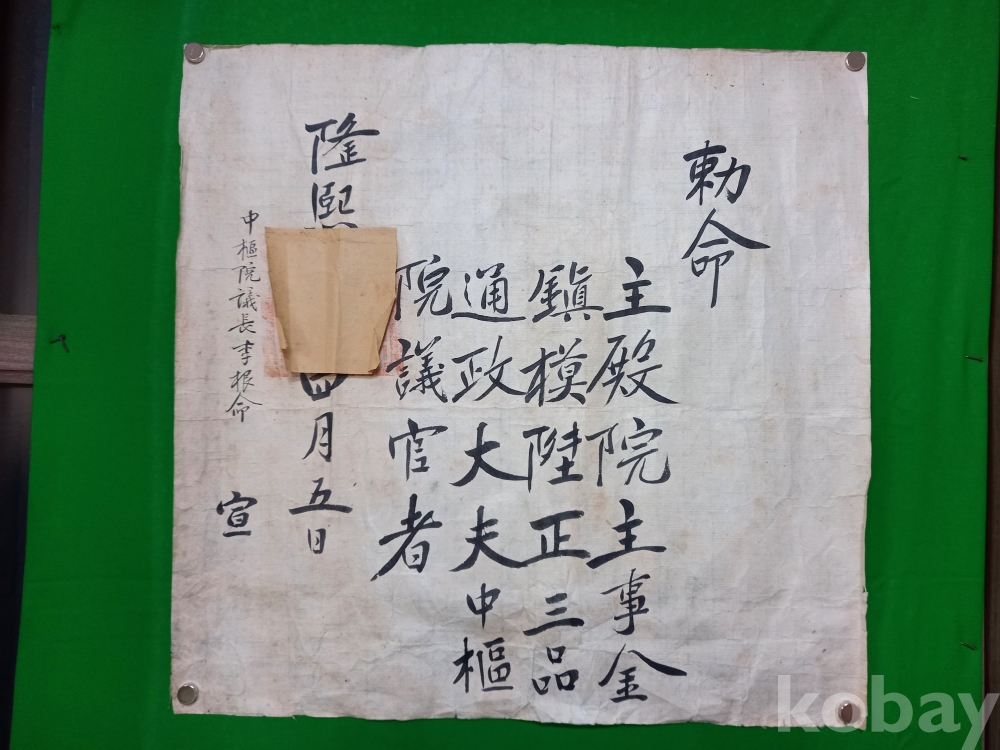 勅命
主殿院主事金
鎭模陞正三品
通政大夫中樞
院議官者
隆熙
四月五日
中樞院議長李根命
宣
kobay